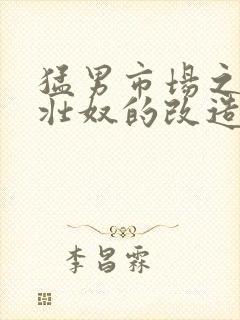 猛男市場之
壯奴的改造
李昌霖